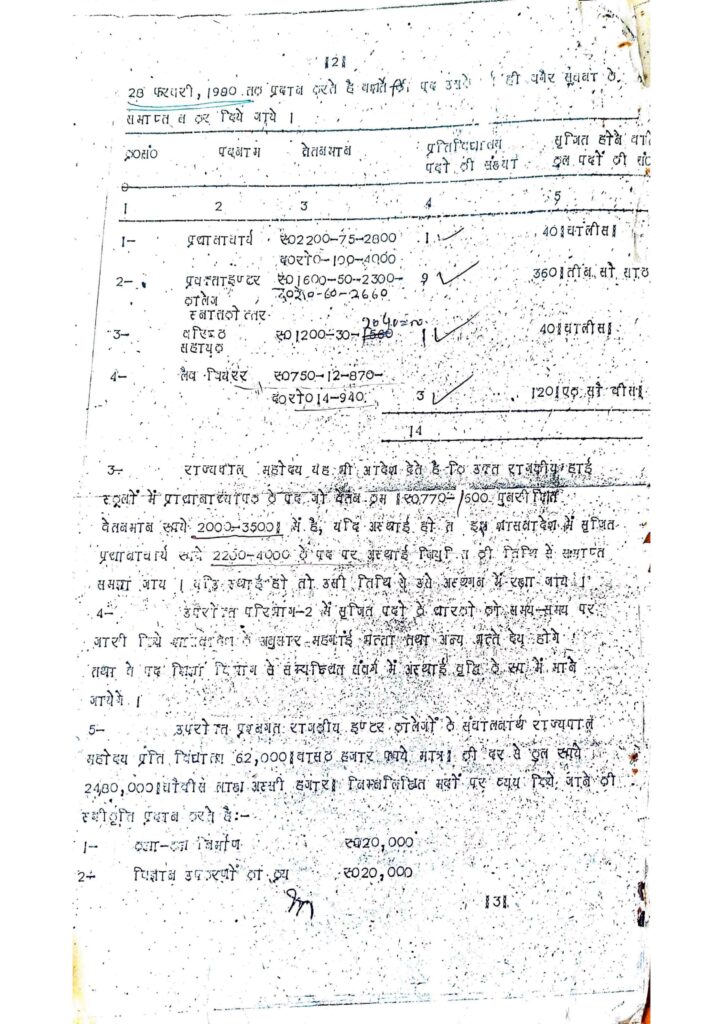 |2|
28 फरवरी, 1980 तक प्रदान करते है बशर्ते कि पद उसके ही बगैर सूचना के
समाप्त न कर दिये जायें ।
क्र०सं० पदनाम वेतनमान प्रतिविद्यालय सृजित होने
पदों की संख्या कुल पदों की
1 2 3 4 5
1- प्रधानाचार्य रू02200-75-2800 1 40|चालीस|
द0रो0-100-4000
2- प्रवक्ताइण्टर रू01600-50-2300- 9 360|तीन सौ साठ
कालेज द0रो0-60-2660
स्नातकोत्तर
2040=00
3- वरिष्ठ रू01200-30-1560 1 40|चालीस|
सहायक
4- लैब बियरर रू0750-12-870- 3 120|एक सौ बीस|
द0रो014-940
14
3- राज्यपाल महोदय यह भी आदेश देते है कि उक्त राजकीय हाई
स्कूलों में प्रधानाध्यापक के पद जो वेतन क्रम |रू0770-1600 पुनरीक्षित
वेतनमान रूपये 2000-3500| में है, यदि अस्थाई हो त इस शासनादेश में सृजित
प्रधानाचार्य रूपये 2200-4000 के पद पर अस्थाई नियुक्ति की तिथि से समाप्त
समझा जाय । यदि स्थाई हो तो उसी तिथि से उसे अस्थगन में रखा जाये ।
4- उपरोक्त परिभाग-2 में सृजित पदो के धारकों को समय-समय पर
जारी किये शासनादेश के अनुसार महगाई भत्ता तथा अन्य भत्ते देय होगे ।
तथा ये पद शिक्षा विभाग से सम्बन्धित संवर्ग में अस्थाई वृद्धि के रूप में माने
जायेगे ।
5- उपरोक्त प्रश्नगत राजकीय इण्टर कालेजों के संचालनार्थ राज्यपाल
महोदय प्रति विद्यालय 62,000|बासठ हजार रूपये मात्र| की दर से कुल रूपये
2480,000|चौबीस लाख अस्सी हजार| निम्नलिखित मदों पर व्यय किये जाने की
स्वीकृति प्रदान करते है:-
1- कक्षा-कक्ष निर्माण रू020,000
2- विज्ञान उपकरणों का क्रय रू020,000
|3|